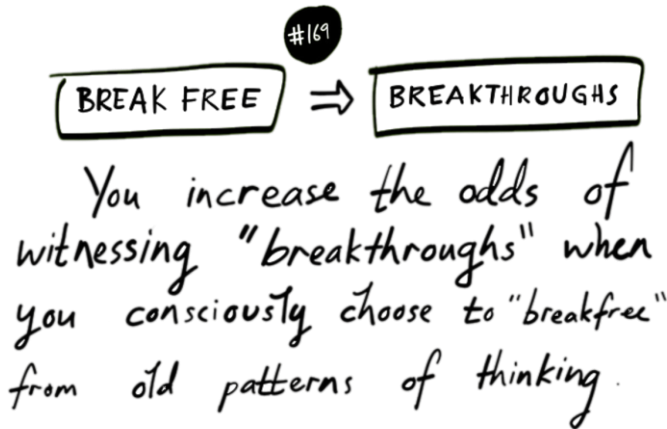 #169
BREAK FREE ⇒ BREAKTHROUGHS
You increase the odds of
witnessing "breakthroughs" when
you consciously choose to "breakfree"
from old patterns of thinking.